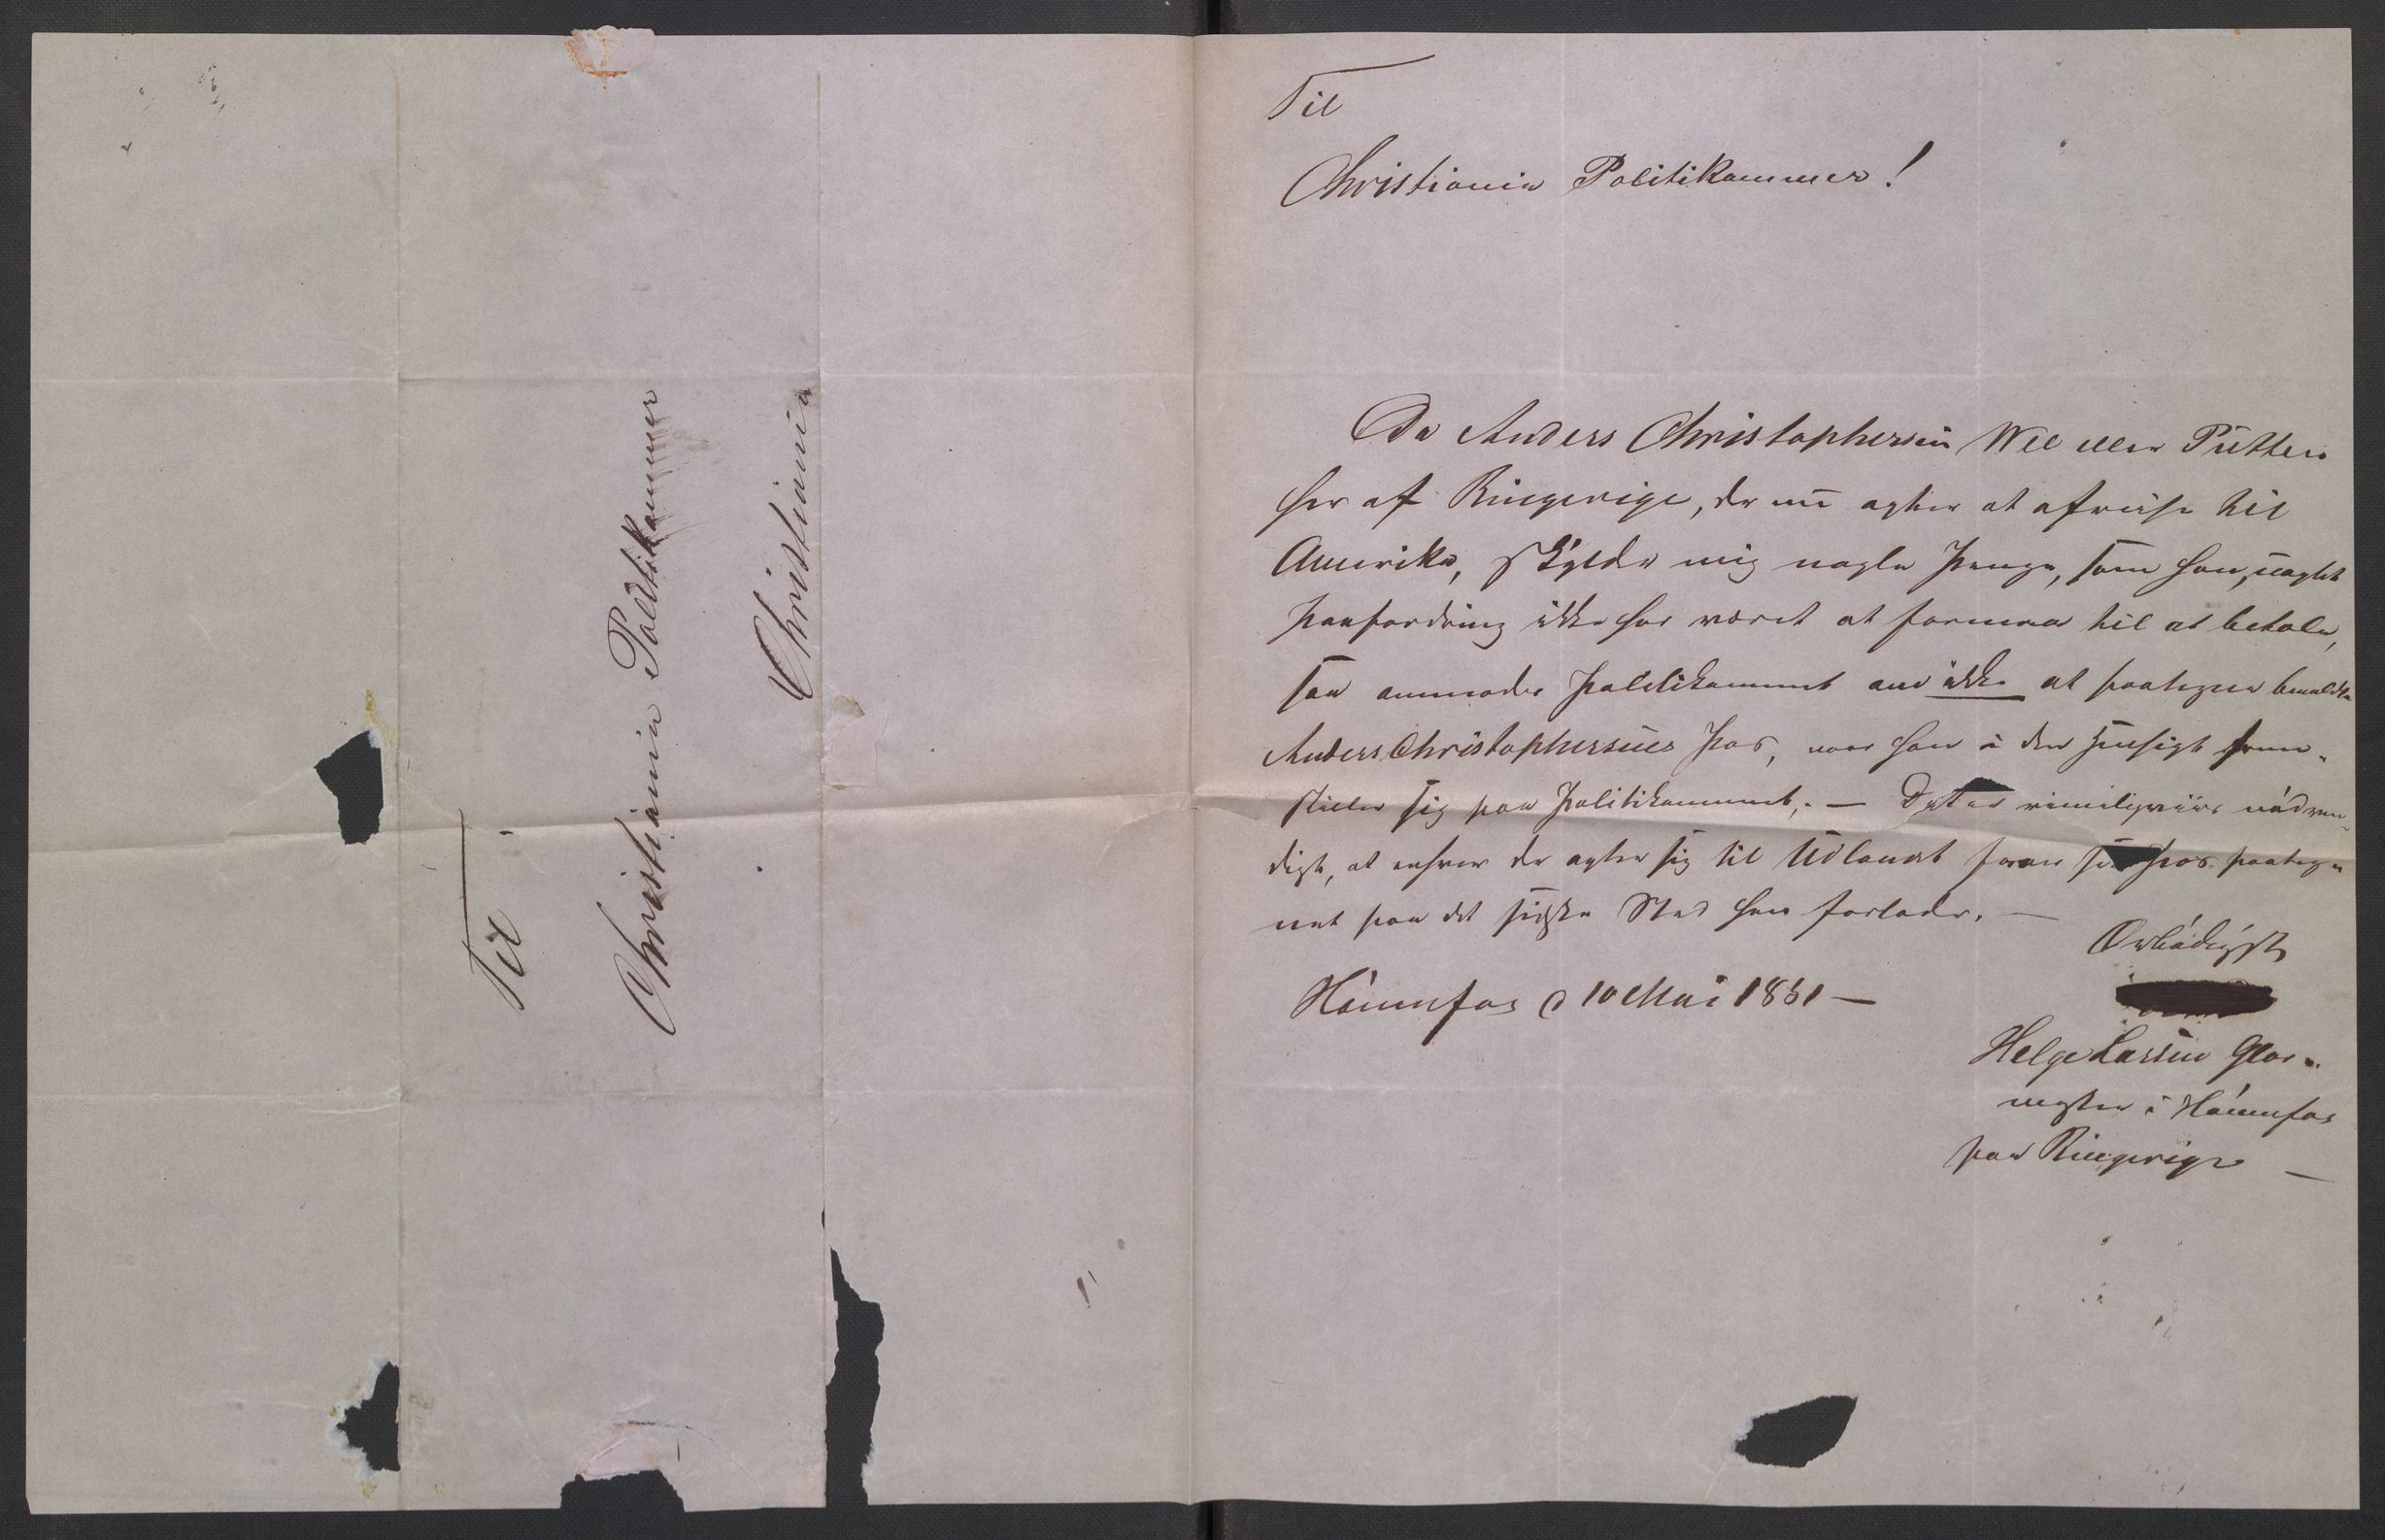 Til
Christiania Politikammer
Christiania
Til
Christiania Politikammer!
Da Anders Christophersen Wel eller Pütten
her af Ringerige, der nu agter at afreise til
Amerika, skylder mig nogle Penge, som han, uagtet
Paafordring ikke har været at formaa til at betale,
saa anmodes Politikammeret om ikke at paategne bemeldte
Anders Christophersens Pas, naar han i den Hensigt frem-
stiller sig paa Politikammeret. — Det er rimeligviis nödven-
digt, at enhver der agter sig til Udlandet faar sit Pas paateg-
net paa det sidste Sted han forlader. —
Hönnefos d 10 Mai 1851 —
Ærbödigst
Helge Larsen Glar-
mester i Hönnefos
paa Ringerige —